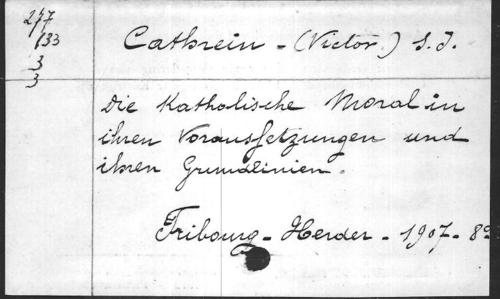 277
133
3
3
Cathrein - (Victor.) S. J.
Die Katholische Moral in
ihren Voraussetzungen und
ihren Grundlinien.
Fribourg - Herder - 1907 - 8º